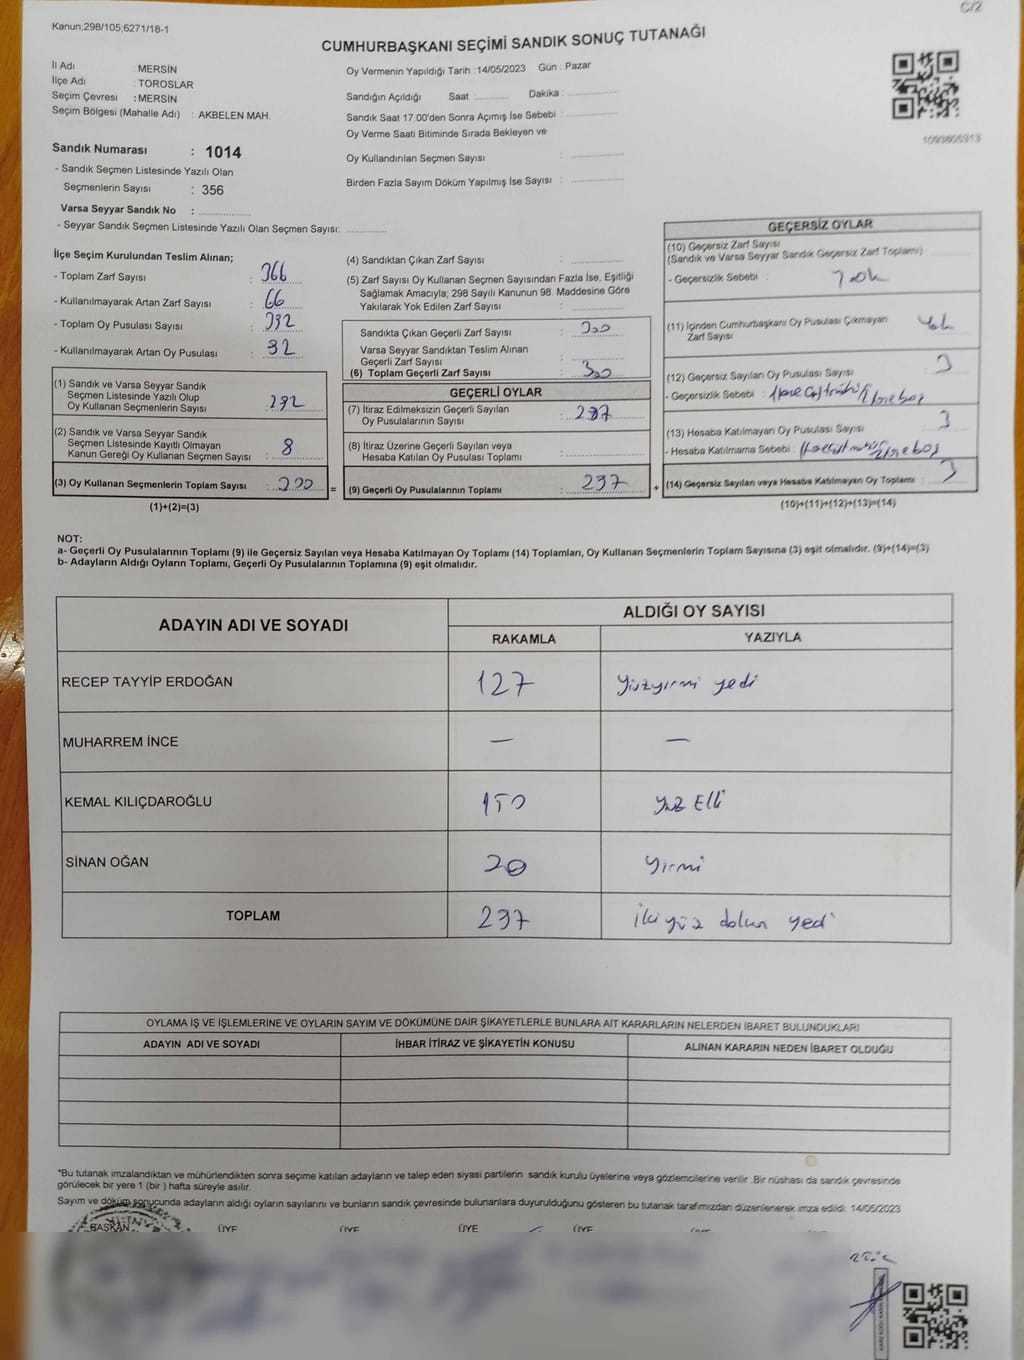 C/2
Kanun;298/105;6271/18-1
CUMHURBAŞKANI SEÇİMİ SANDIK SONUÇ TUTANAĞI
İl Adı : MERSİN
İlçe Adı : TOROSLAR
Seçim Çevresi : MERSİN
Seçim Bölgesi (Mahalle Adı) : AKBELEN MAH.
Sandık Numarası : 1014
- Sandık Seçmen Listesinde Yazılı Olan
Seçmenlerin Sayısı : 356
Varsa Seyyar Sandık No :
- Seyyar Sandık Seçmen Listesinde Yazılı Olan Seçmen Sayısı:
Oy Vermenin Yapıldığı Tarih : 14/05/2023 Gün : Pazar
Sandığın Açıldığı Saat : Dakika :
Sandık Saat 17:00'den Sonra Açımış İse Sebebi :
Oy Verme Saati Bitiminde Sırada Bekleyen ve
Oy Kullandırılan Seçmen Sayısı :
Birden Fazla Sayım Döküm Yapılmış İse Sayısı :
1093605313
İlçe Seçim Kurulundan Teslim Alınan;
- Toplam Zarf Sayısı : 366
- Kullanılmayarak Artan Zarf Sayısı : 66
- Toplam Oy Pusulası Sayısı :
- Kullanılmayarak Artan Oy Pusulası : 92
(1) Sandık ve Varsa Seyyar Sandık
Seçmen Listesinde Yazılı Olup
Oy Kullanan Seçmenlerin Sayısı : 292
(2) Sandık ve Varsa Seyyar Sandık
Seçmen Listesinde Kayıtlı Olmayan
Kanun Gereği Oy Kullanan Seçmen Sayısı : 8
(3) Oy Kullanan Seçmenlerin Toplam Sayısı : 300
(1)+(2)=(3)
(4) Sandıktan Çıkan Zarf Sayısı :
(5) Zarf Sayısı Oy Kullanan Seçmen Sayısından Fazla İse, Eşitliği
Sağlamak Amacıyla; 298 Sayılı Kanunun 98. Maddesine Göre
Yakılarak Yok Edilen Zarf Sayısı :
Sandıkta Çıkan Geçerli Zarf Sayısı : 300
Varsa Seyyar Sandıktan Teslim Alınan
Geçerli Zarf Sayısı :
(6) Toplam Geçerli Zarf Sayısı : 300
GEÇERLİ OYLAR
(7) İtiraz Edilmeksizin Geçerli Sayılan
Oy Pusulalarının Sayısı : 297
(8) İtiraz Üzerine Geçerli Sayılan veya
Hesaba Katılan Oy Pusulası Toplamı :
= (9) Geçerli Oy Pusulalarının Toplamı : 297 +
GEÇERSİZ OYLAR
(10) Geçersiz Zarf Sayısı
(Sandık ve Varsa Seyyar Sandık Geçersiz Zarf Toplamı) :
- Geçersizlik Sebebi : Yok
(11) İçinden Cumhurbaşkanı Oy Pusulası Çıkmayan Yok
Zarf Sayısı
(12) Geçersiz Sayılan Oy Pusulası Sayısı 3
- Geçersizlik Sebebi :
(13) Hesaba Katılmayan Oy Pusulası Sayısı 3
- Hesaba Katılmama Sebebi :
(14) Geçersiz Sayılan veya Hesaba Katılmayan Oy Toplamı 3
(10)+(11)+(12)+(13)=(14)
NOT:
a- Geçerli Oy Pusulalarının Toplamı (9) ile Geçersiz Sayılan veya Hesaba Katılmayan Oy Toplamı (14) Toplamları, Oy Kullanan Seçmenlerin Toplam Sayısına (3) eşit olmalıdır. (9)+(14)=(3)
b- Adayların Aldığı Oyların Toplamı, Geçerli Oy Pusulalarının Toplamına (9) eşit olmalıdır.
ADAYIN ADI VE SOYADI
ALDIĞI OY SAYISI
RAKAMLA YAZIYLA
RECEP TAYYİP ERDOĞAN 127 yüzyirmi yedi
MUHARREM İNCE — —
KEMAL KILIÇDAROĞLU 150 yüz Elli
SİNAN OĞAN 20 yirmi
TOPLAM 297 iki yüz doksan yedi
OYLAMA İŞ VE İŞLEMLERİNE VE OYLARIN SAYIM VE DÖKÜMÜNE DAİR ŞİKAYETLERLE BUNLARA AİT KARARLARIN NELERDEN İBARET BULUNDUKLARI
ADAYIN ADI VE SOYADI İHBAR İTİRAZ VE ŞİKAYETİN KONUSU ALINAN KARARIN NEDEN İBARET OLDUĞU
*Bu tutanak imzalandıktan ve mühürlendikten sonra seçime katılan adayların ve talep eden siyasi partilerin sandık kurulu üyelerine veya gözlemcilerine verilir. Bir nüshası da sandık çevresinde
görülecek bir yere 1 (bir ) hafta süreyle asılır.
Sayım ve döküm sonucunda adayların aldığı oyların sayılarını ve bunların sandık çevresinde bulunanlara duyurulduğunu gösteren bu tutanak tarafımızdan düzenlenerek imza edildi. 14/05/2023
BAŞKAN ÜYE ÜYE ÜYE ÜYE